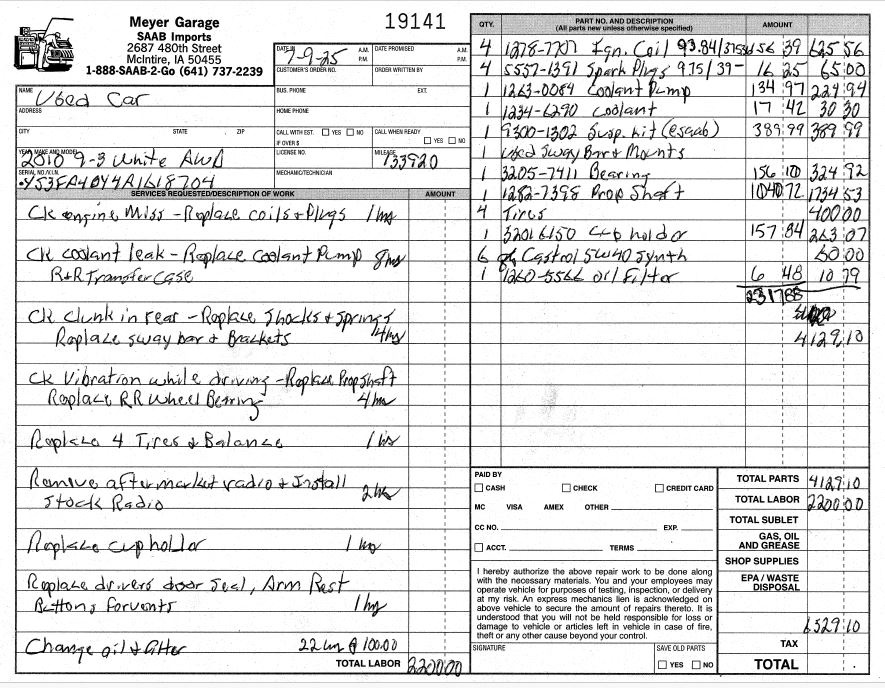 Meyer Garage
SAAB Imports
2687 480th Street
McIntire, IA 50455
1-888-SAAB-2-Go (641) 737-2239
19141
DATE IN 7-9-25 A.M. P.M.
DATE PROMISED A.M. P.M.
CUSTOMER'S ORDER NO.
ORDER WRITTEN BY
NAME Used Car
BUS. PHONE EXT.
ADDRESS
HOME PHONE
CITY STATE ZIP
CALL WITH EST. YES NO
IF OVER $
CALL WHEN READY
YES NO
YEAR, MAKE AND MODEL 2010 9-3 White AWD
LICENSE NO.
MILEAGE 133920
SERIAL NO./V.I.N. YS3FA4DY4A1618704
MECHANIC/TECHNICIAN
SERVICES REQUESTED/DESCRIPTION OF WORK AMOUNT
Ck engine Miss - Replace coils & Plugs 1 hrs
Ck coolant leak - Replace Coolant Pump 8 hrs
R+R Transfer Case
Ck Clunk in rear - Replace Shocks & Springs
Replace sway bar & Brackets 4 hrs
Ck Vibration while driving - Replace Prop Shaft
Replace RR Wheel Bearing 4 hrs
Replace 4 Tires & Balance 1 hrs
Remove aftermarket radio & Install
Stock Radio 2 hrs
Replace cup holder 1 hrs
Replace drivers door Seal, Arm Rest
Buttons for vents 1 hrs
Change oil & filter 22 hrs @ 100.00
TOTAL LABOR 2200.00
QTY. PART NO. AND DESCRIPTION AMOUNT
(All parts new unless otherwise specified)
4 1278-7707 Ign. Coil 93.84/ 39 625 56
4 5557-1391 Spark Plugs 975/39- 16 25 65 00
1 1263-0084 Coolant Pump 134 97 224 94
1 1234-6290 coolant 17 42 30 30
1 9300-1302 Susp. kit (esaab) 389 99 389 99
1 Used Sway Bar & Mounts
1 3205-7411 Bearing 156 10 324 92
1 1282-7398 Prop Shaft 1040 72 1734 53
4 Tires 400 00
1 32016150 Cup holder 157 84 263 07
6 qts Castrol 5W40 Synth 60 00
1 1260-5566 Oil Filter 6 48 10 79
2317 88
4129 10
PAID BY
CASH CHECK CREDIT CARD
MC VISA AMEX OTHER
CC NO. EXP.
ACCT. TERMS
I hereby authorize the above repair work to be done along
with the necessary materials. You and your employees may
operate vehicle for purposes of testing, inspection, or delivery
at my risk. An express mechanics lien is acknowledged on
above vehicle to secure the amount of repairs thereto. It is
understood that you will not be held responsible for loss or
damage to vehicle or articles left in vehicle in case of fire,
theft or any other cause beyond your control.
SIGNATURE
SAVE OLD PARTS
YES NO
TOTAL PARTS 4129 10
TOTAL LABOR 2200 00
TOTAL SUBLET
GAS, OIL
AND GREASE
SHOP SUPPLIES
EPA / WASTE
DISPOSAL
6329 10
TAX
TOTAL